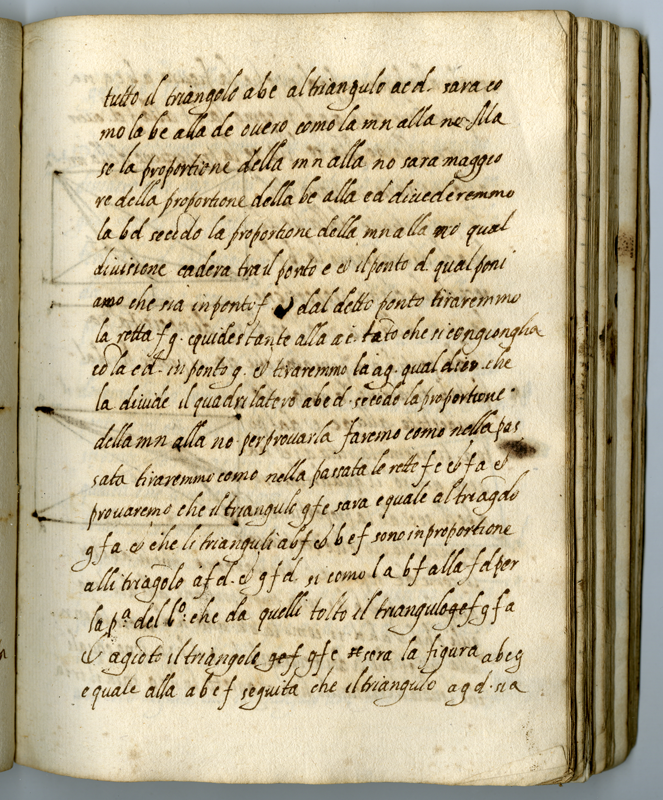 tutto il triangolo abe al triangulo acd. sara co
mo la be alla de overo como la mn alla no. Ma
se la proportione della mn alla no sara maggio
re della proportione della be alla ed divederemmo
la bd secōdo la proportione della mn alla no qual
divisione cadera tra il ponto e & il ponto d. qual poni
amo che sia in ponto f & dal detto ponto tiraremmo
la retta fg. equidestante alla ac. tāto che si congiongha
cō la cd. in ponto g. & tiraremmo la ag. qual dico. che
la divide il quadrilatero abcd. secōdo la proportione
della mn alla no per provarla faremo como nella pas
sata tiraremmo como nella passata le rette fc & fa &
provaremo che il triangulo gfc sara equale al triāgolo
gfa & che li trianguli abf & bcf sono in proportione
alli triāgolo afd. & gfd. si como la bf alla fd per
la pª. del 6º. che da quelli tolto il triangulo gfa
& agiōto il triangolo gfc sera la figura abcg
equale alla abcf seguita che il triangulo agd. sia